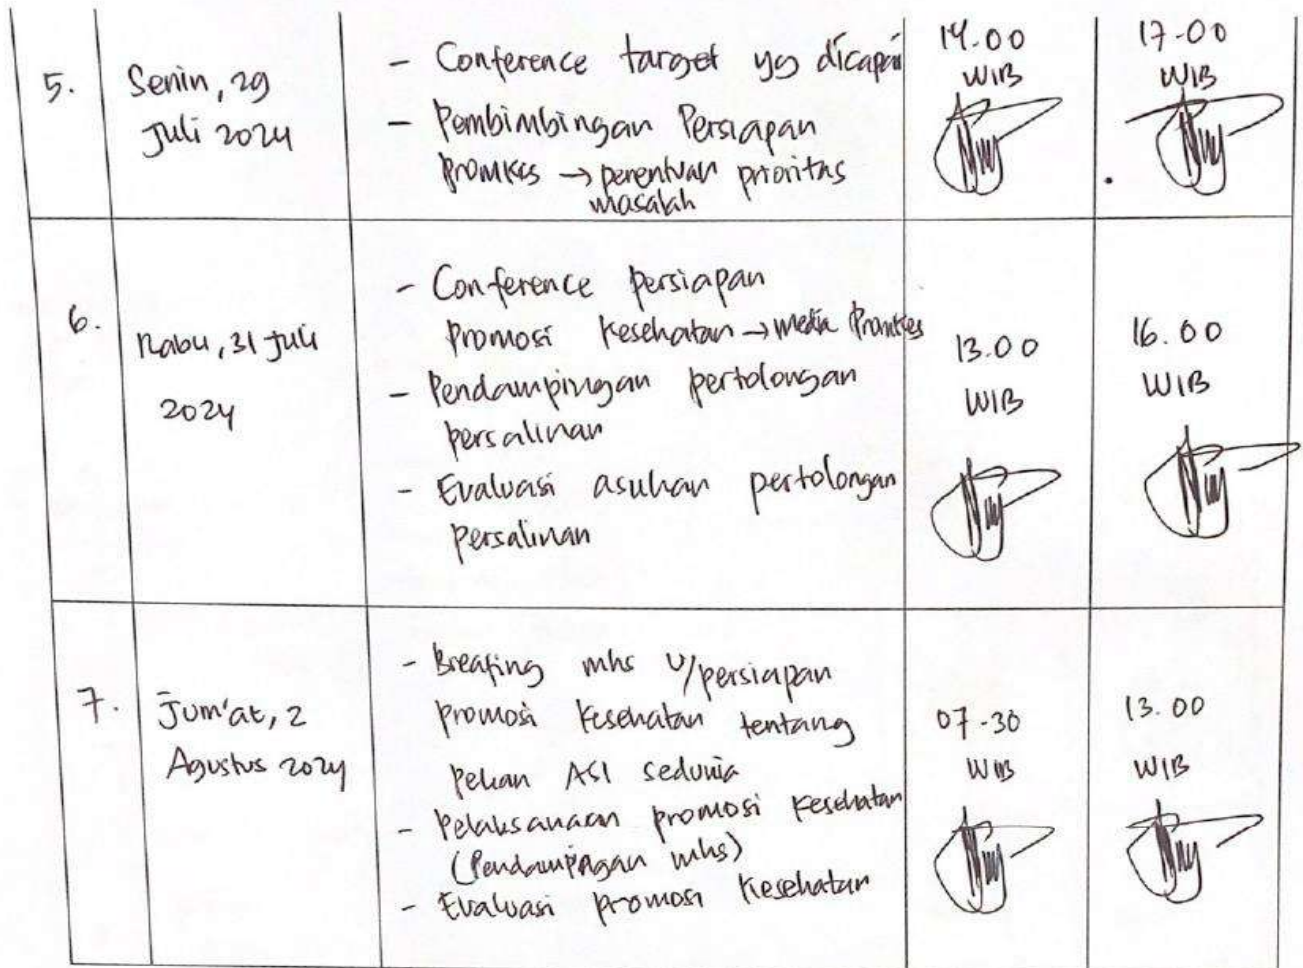 5.
Senin, 29
Juli 2024
- Conference target yg dicapai
- Pembimbingan Persiapan
Promkes → penentuan prioritas
masalah
14.00
WIB
17.00
WIB
6.
Rabu, 31 Juli
2024
- Conference persiapan
Promosi Kesehatan → media Promkes
- Pendampingan pertolongan
persalinan
- Evaluasi asuhan pertolongan
persalinan
13.00
WIB
16.00
WIB
7.
Jum'at, 2
Agustus 2024
- Breafing mhs u/persiapan
promosi kesehatan tentang
pekan ASI sedunia
- Pelaksanaan promosi kesehatan
(Pendampingan mhs)
- Evaluasi promosi kesehatan
07-30
WIB
13.00
WIB